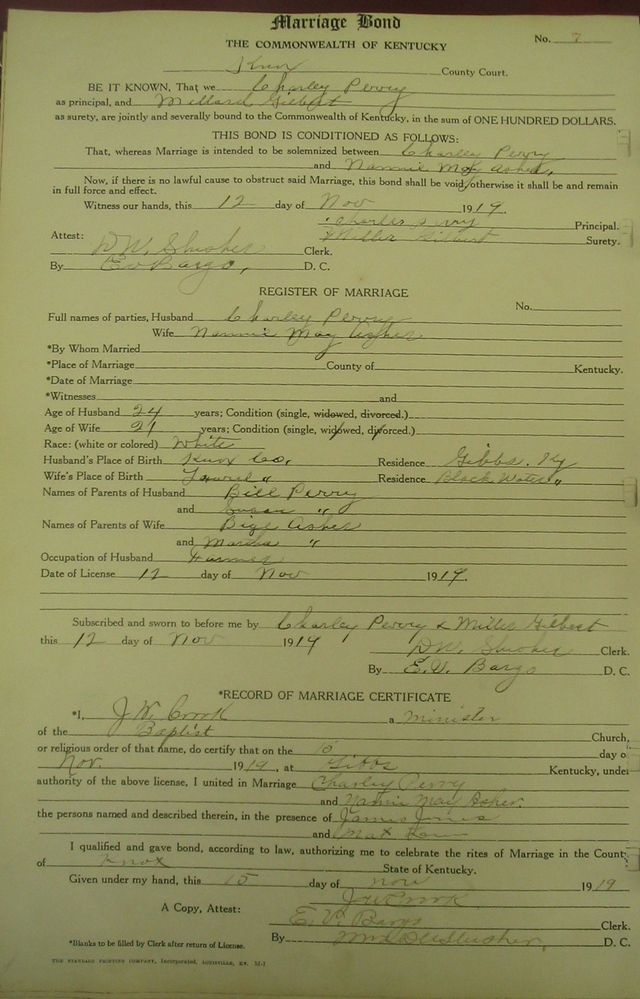 Marriage Bond
THE COMMONWEALTH OF KENTUCKY
No. 7
Knox County Court.
BE IT KNOWN, That we Charley Perry
as principal, and Millard Gilbert
as surety, are jointly and severally bound to the Commonwealth of Kentucky, in the sum of ONE HUNDRED DOLLARS.
THIS BOND IS CONDITIONED AS FOLLOWS:
That, whereas Marriage is intended to be solemnized between Charley Perry
and Nannie May Asher,
Now, if there is no lawful cause to obstruct said Marriage, this bond shall be void, otherwise it shall be and remain
in full force and effect.
Witness our hands, this 12 day of Nov 1919.
Charles Perry Principal.
Miller Gilbert Surety.
Attest:
D W Clerk.
By Bargo, D. C.
REGISTER OF MARRIAGE
No.
Full names of parties, Husband Charley Perry
Wife Nannie May Asher
*By Whom Married
*Place of Marriage County of Kentucky.
*Date of Marriage
*Witnesses and
Age of Husband 24 years; Condition (single, widowed, divorced.)
Age of Wife 21 years; Condition (single, widowed, divorced.)
Race: (white or colored) White
Husband's Place of Birth Knox Co, Residence Gibbs, Ky
Wife's Place of Birth Laurel " Residence Black Water "
Names of Parents of Husband Bill Perry
and Susan "
Names of Parents of Wife Bige Asher
and Martha "
Occupation of Husband Farmer
Date of License 12 day of Nov 1919.
Subscribed and sworn to before me by Charley Perry & Miller Gilbert
this 12 day of Nov 1919
D W Clerk.
By E. V. Bargo D. C.
*RECORD OF MARRIAGE CERTIFICATE
*I, J. W. Crook a minister
of the Baptist Church,
or religious order of that name, do certify that on the 15 day o
Nov. 1919, at Gibbs Kentucky, under
authority of the above license, I united in Marriage Charley Perry
and Nannie May Asher.
the persons named and described therein, in the presence of James Jones
and
I qualified and gave bond, according to law, authorizing me to celebrate the rites of Marriage in the County
of Knox State of Kentucky.
Given under my hand, this 15 day of Nov 1919
J W Crook
A Copy, Attest: E. V. Bargo Clerk.
By D. C.
*Blanks to be filled by Clerk after return of License.
THE STANDARD PRINTING COMPANY, Incorporated, LOUISVILLE, KY.